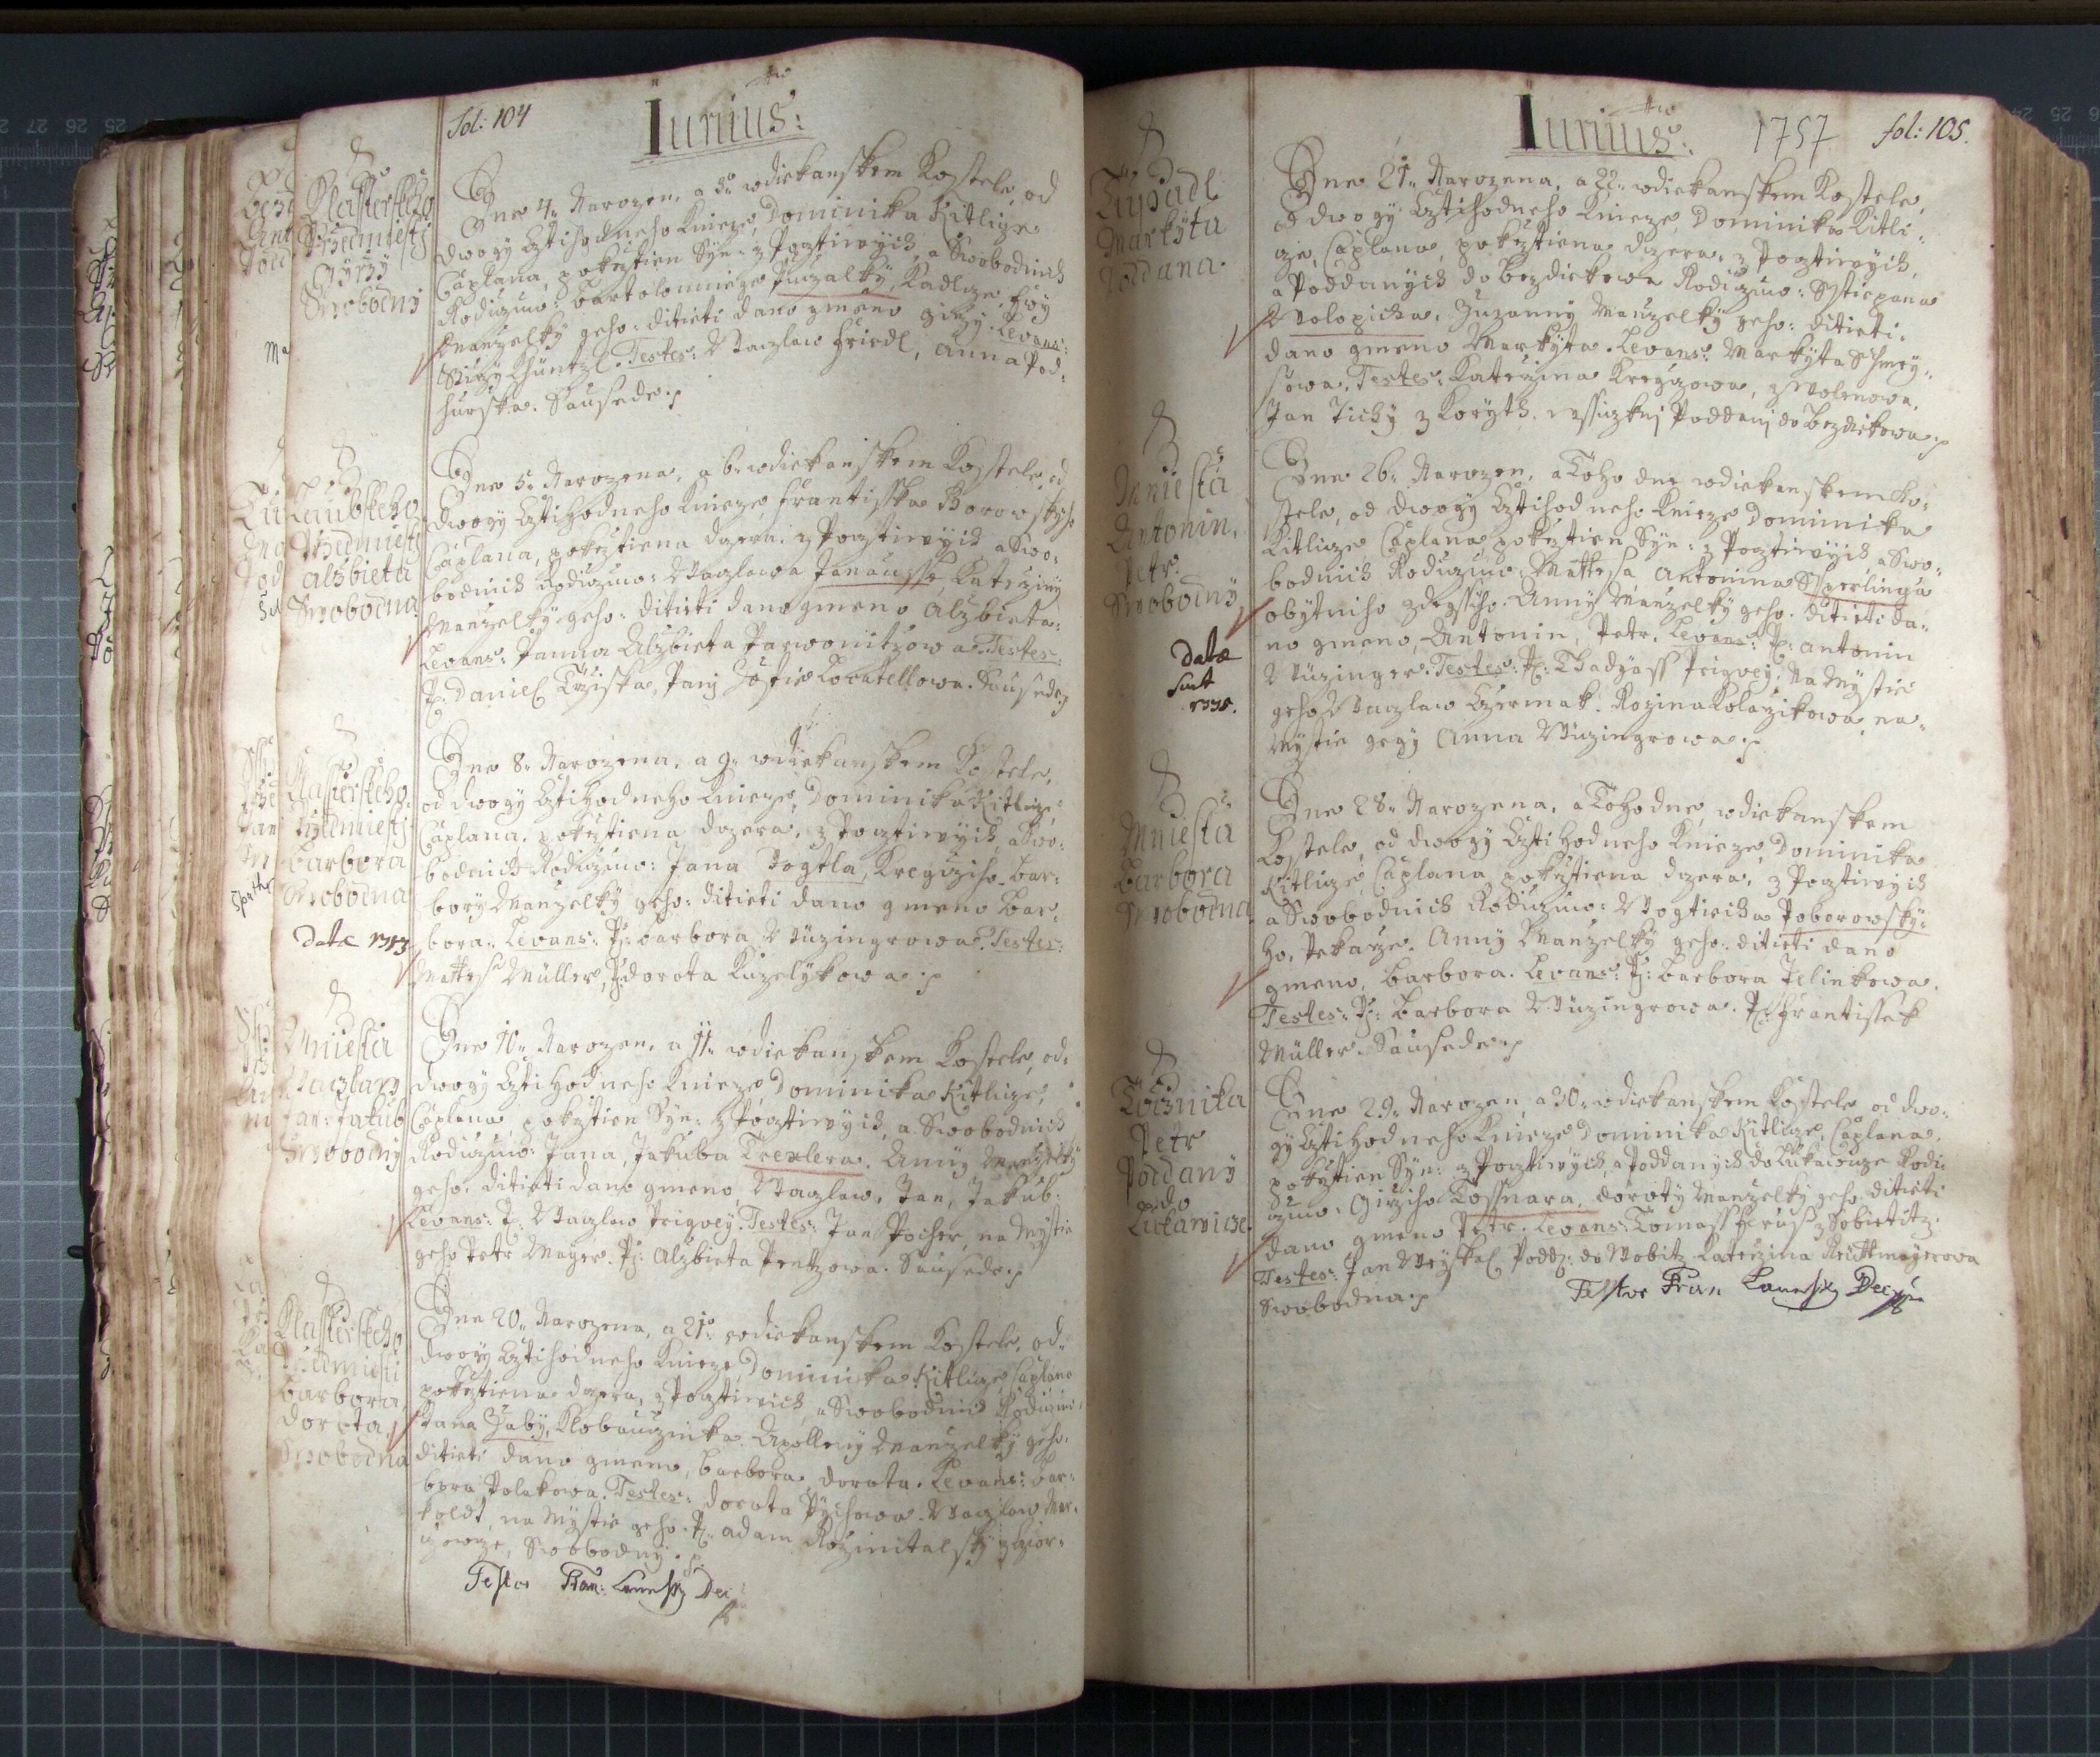 fol: 104
Iunius:
Klasterskeho
Przedmiesti
Gyrzy
Swobodny
Dne 4. Narozen, a 5. wdiekanskem Kostele, od
dwogy Cztihodneho Knieze, Dominika Kitlize
Caplana, pokrztien Syn: z Pocztiwych, a Swobodnich
Rodiczuw: Bartolomnieze, Kadlcze, Ewy
Manzelky geho: ditieti dano gmeno Girzy. Levans:
Girzy Chüntzl. Testes: Waczlaw Friedl, Anna Pod:
hurska. Sausede.
Przedmiesti
Alzbieta
Swobodna
Dne 5. Narozena, a 6. wdiekanskem Kostele, od
dwogy Cztihodneho Knieze Frantisska Borowskyho
Caplana, pokrztiena dczera: z Pocztiwych, a Swo:
bodnich Rodiczuw: Waczlawa Janausse, Katerziny
Manzelky geho: ditieti dano gmeno Alzbieta:
Levans: Panna Alzbieta Parwonitzowa. Testes:
P: Daniel Trziska, Pani Locatellowa. Sausede.
Klasterskeho
Przedmiesti
Barbora
Swobodna
Datae 1773
Dne 8. Narozena, a 9. wdiekanskem Kostele,
od dwogy Cztihodneho Knieze, Dominika Kitlize,
Caplana, pokrztiena dczera, z Pocztiwych, a Swo:
bodnich Rodiczuw: Jana Vogtla, Kregcziho. Bar:
bory Manzelky geho: ditieti dano gmeno Bar:
bora: Levans: P: Barbora Wüzingrowa. Testes:
Mattess Müller, P: Dorota Kuzelykowa.
Mniesta
Waczlaw
Jan: Jakub
Swobodny
Dne 10. Narozen, a 11. wdiekanskem Kostele, od
dwogy Cztihodneho Knieze, Dominika Kitlize,
Caplana, pokrztien Syn: z Pocztiwych, a Swobodnich
Rodiczuw: Jana, Jakuba Trexlera. Anny Manzelky
geho. ditieti dano gmeno, Waczlaw, Jan, Jakub:
Levans: P: Waczlaw Prigwey. Testes: Jan Pocher, na Mystie
geho Petr Mager. P: Alzbieta Pentzowa. Sausede.
Klasterskeho
Przedmiesti
Barbora,
Dorota,
Swobodna
Dne 20. Narozena, a 21. wdiekanskem Kostele, od
dwogy Cztihodneho Knieze, Dominika Kitlize, Caplana
pokrztiena dczera, z Pocztiwich, a Swobodnich Rodiczuw
Jana Zaby, Klobaucznika. Apolleny Manzelky geho.
ditieti dano gmeno, Barbora, Dorota. Levans: Bar:
bora Polakowa. Testes: Dorota Pychowa. Waczlaw Mar:
koldt, na Mystie geho. P: Adam Rozmitalsky
Swobodny.
Testor Fran: Dec
Iunius:
1757
fol: 105.
Markyta
Poddana.
Dne 21. Narozena, a 22. wdiekanskem Kostele,
od dwogy Cztihodneho Knieze, Dominika Kitli:
ze, Caplana, pokrztiena dczera, z Pocztiwych,
a Poddanych do Bezdiekowa Rodiczuw: Sstiepana
Wolopicha, Zuzanny Manzelky geho: ditieti
dano gmeno Markyta. Levans: Markyta Schmey:
sowa. Testes: Katerzina Kregczowa, z Wolenowa,
Jan Tichy z Koryth. wssiczkni Poddani do Bezdiekowa.
Mniesta
Antonin,
Petr.
Swobodny
Datae
sunt
1775.
Dne 26. Narozen, a Toho dne wdiekanskem Ko:
stele, od dwogy Cztihodneho Knieze Dominika
Kitlize Caplana pokrztien Syn: z Pocztiwych, a Swo:
bodnich Rodiczuw: Mattessa Antonina Sperlinga
obytniho zdegssiho. Anny Manzelky geho. ditieti da:
no gmeno, Antonin, Petr. Levans: P: Antonin
Wüzinger. Testes: P: Thadyass Prigwey, Na Mystie
geho Waczlaw Czermak. Rozina Kolarzikowa, na
Mystie gegy Anna Wüzingrowa.
Mniesta
Barbora
Swobodna
Dne 28. Narozena, a Toho dne, wdiekanskem
Kostele, od dwogy Cztihodneho Knieze, Dominika
Kitlize, Caplana pokrztiena dczera, z Pocztiwych
a Swobodnich Rodiczuw: Wogticha Poborowsky:
ho, Pekarze. Anny Manzelky geho: ditieti dano
gmeno, Barbora. Levans: P: Barbora Jelinkowa.
Testes: P: Barbora Wüzingrowa. P: Frantissek
Müller. Sausede.
Loznika
Petr
Poddany
do
Lukawicze
Dne 29. Narozen, a 30. wdiekanskem Kostele od dwo:
gy Cztihodneho Knieze Dominika Kitlize, Caplana,
pokrztien Syn: z Pocztiwych, a Poddanych do Lukawicze Rodi:
czuw: Girziho Kossnara, Doroty Manzelky geho. ditieti
dano gmeno Petr. Levans: Tomass z Sobietitz.
Testes: Jan Weyskal Podd: do Wobitz. Katerzina Reüttmayerowa
Swobodna.
Testor Fran Dec